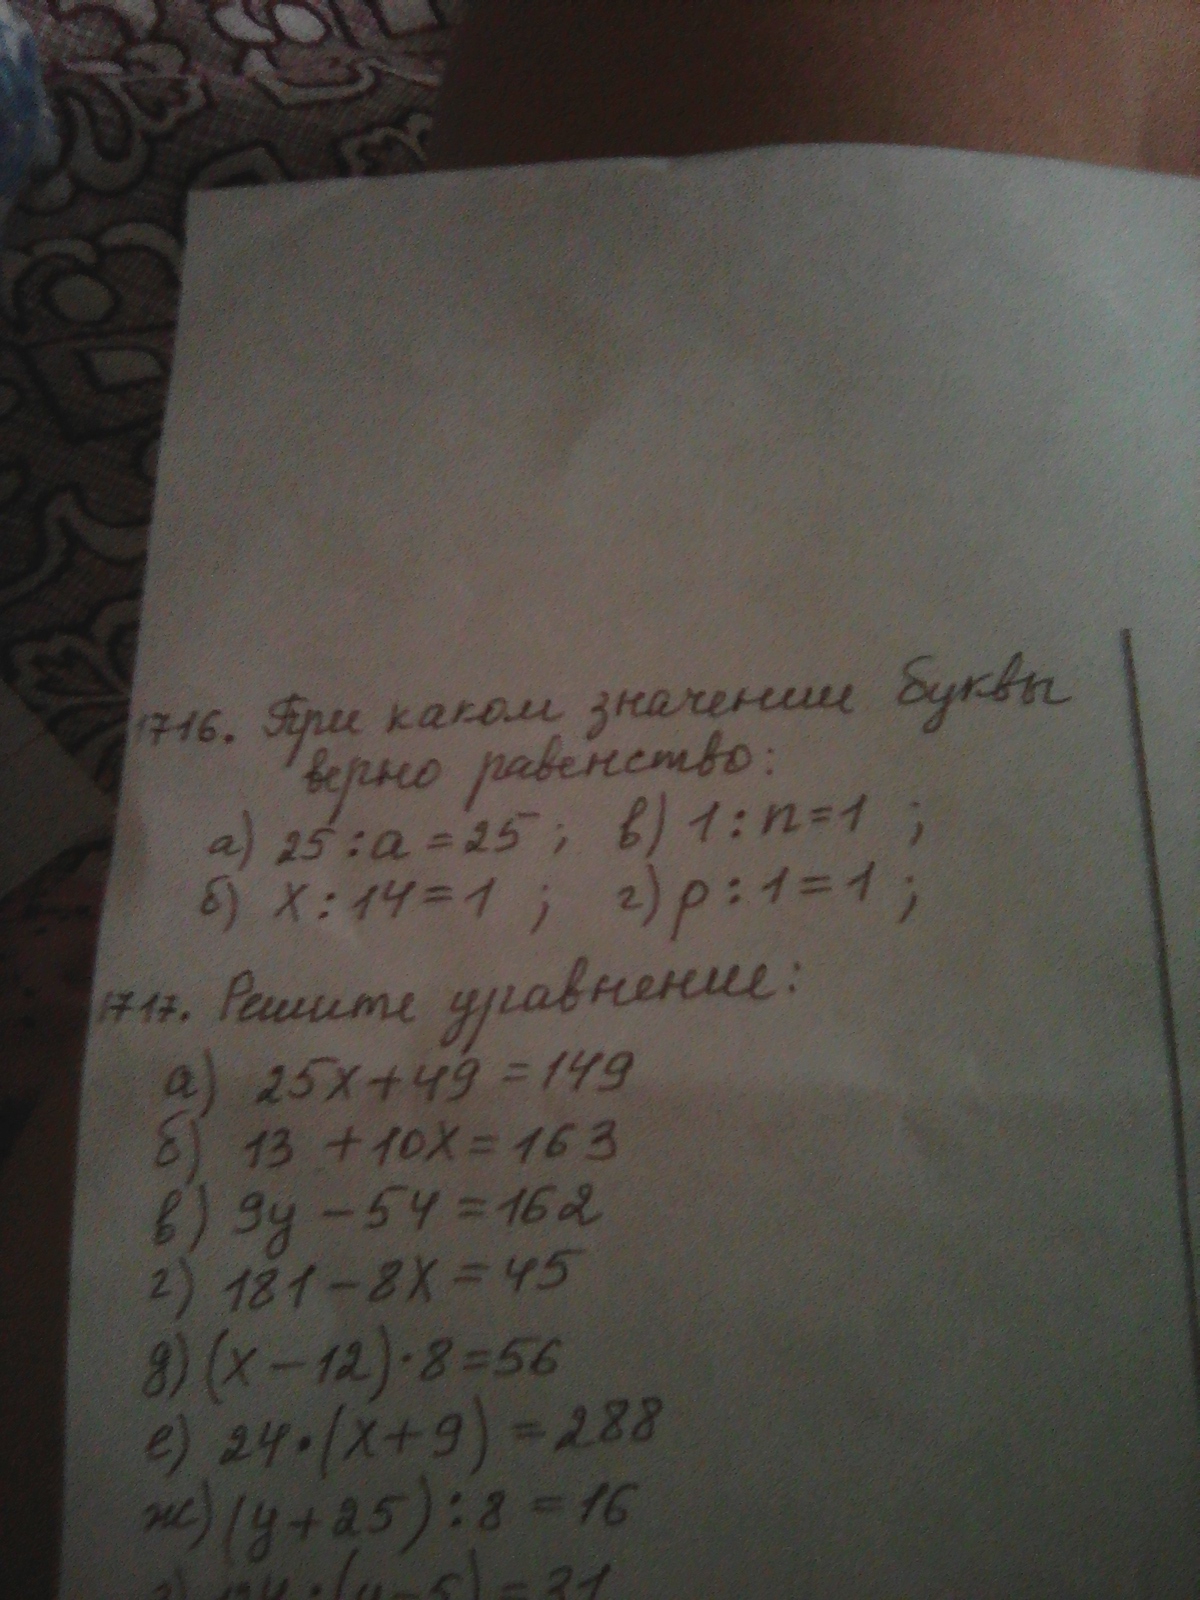 1716. При каком значении буквы
верно равенство:
а) 25 : a = 25 ; в) 1 : n = 1 ;
б) x : 14 = 1 ; г) p : 1 = 1 ;
1717. Решите уравнение:
а) 25x + 49 = 149
б) 13 + 10x = 163
в) 9y - 54 = 162
г) 181 - 8x = 45
д) (x - 12) · 8 = 56
е) 24 · (x + 9) = 288
ж) (y + 25) : 8 = 16
(y - 5) = 31